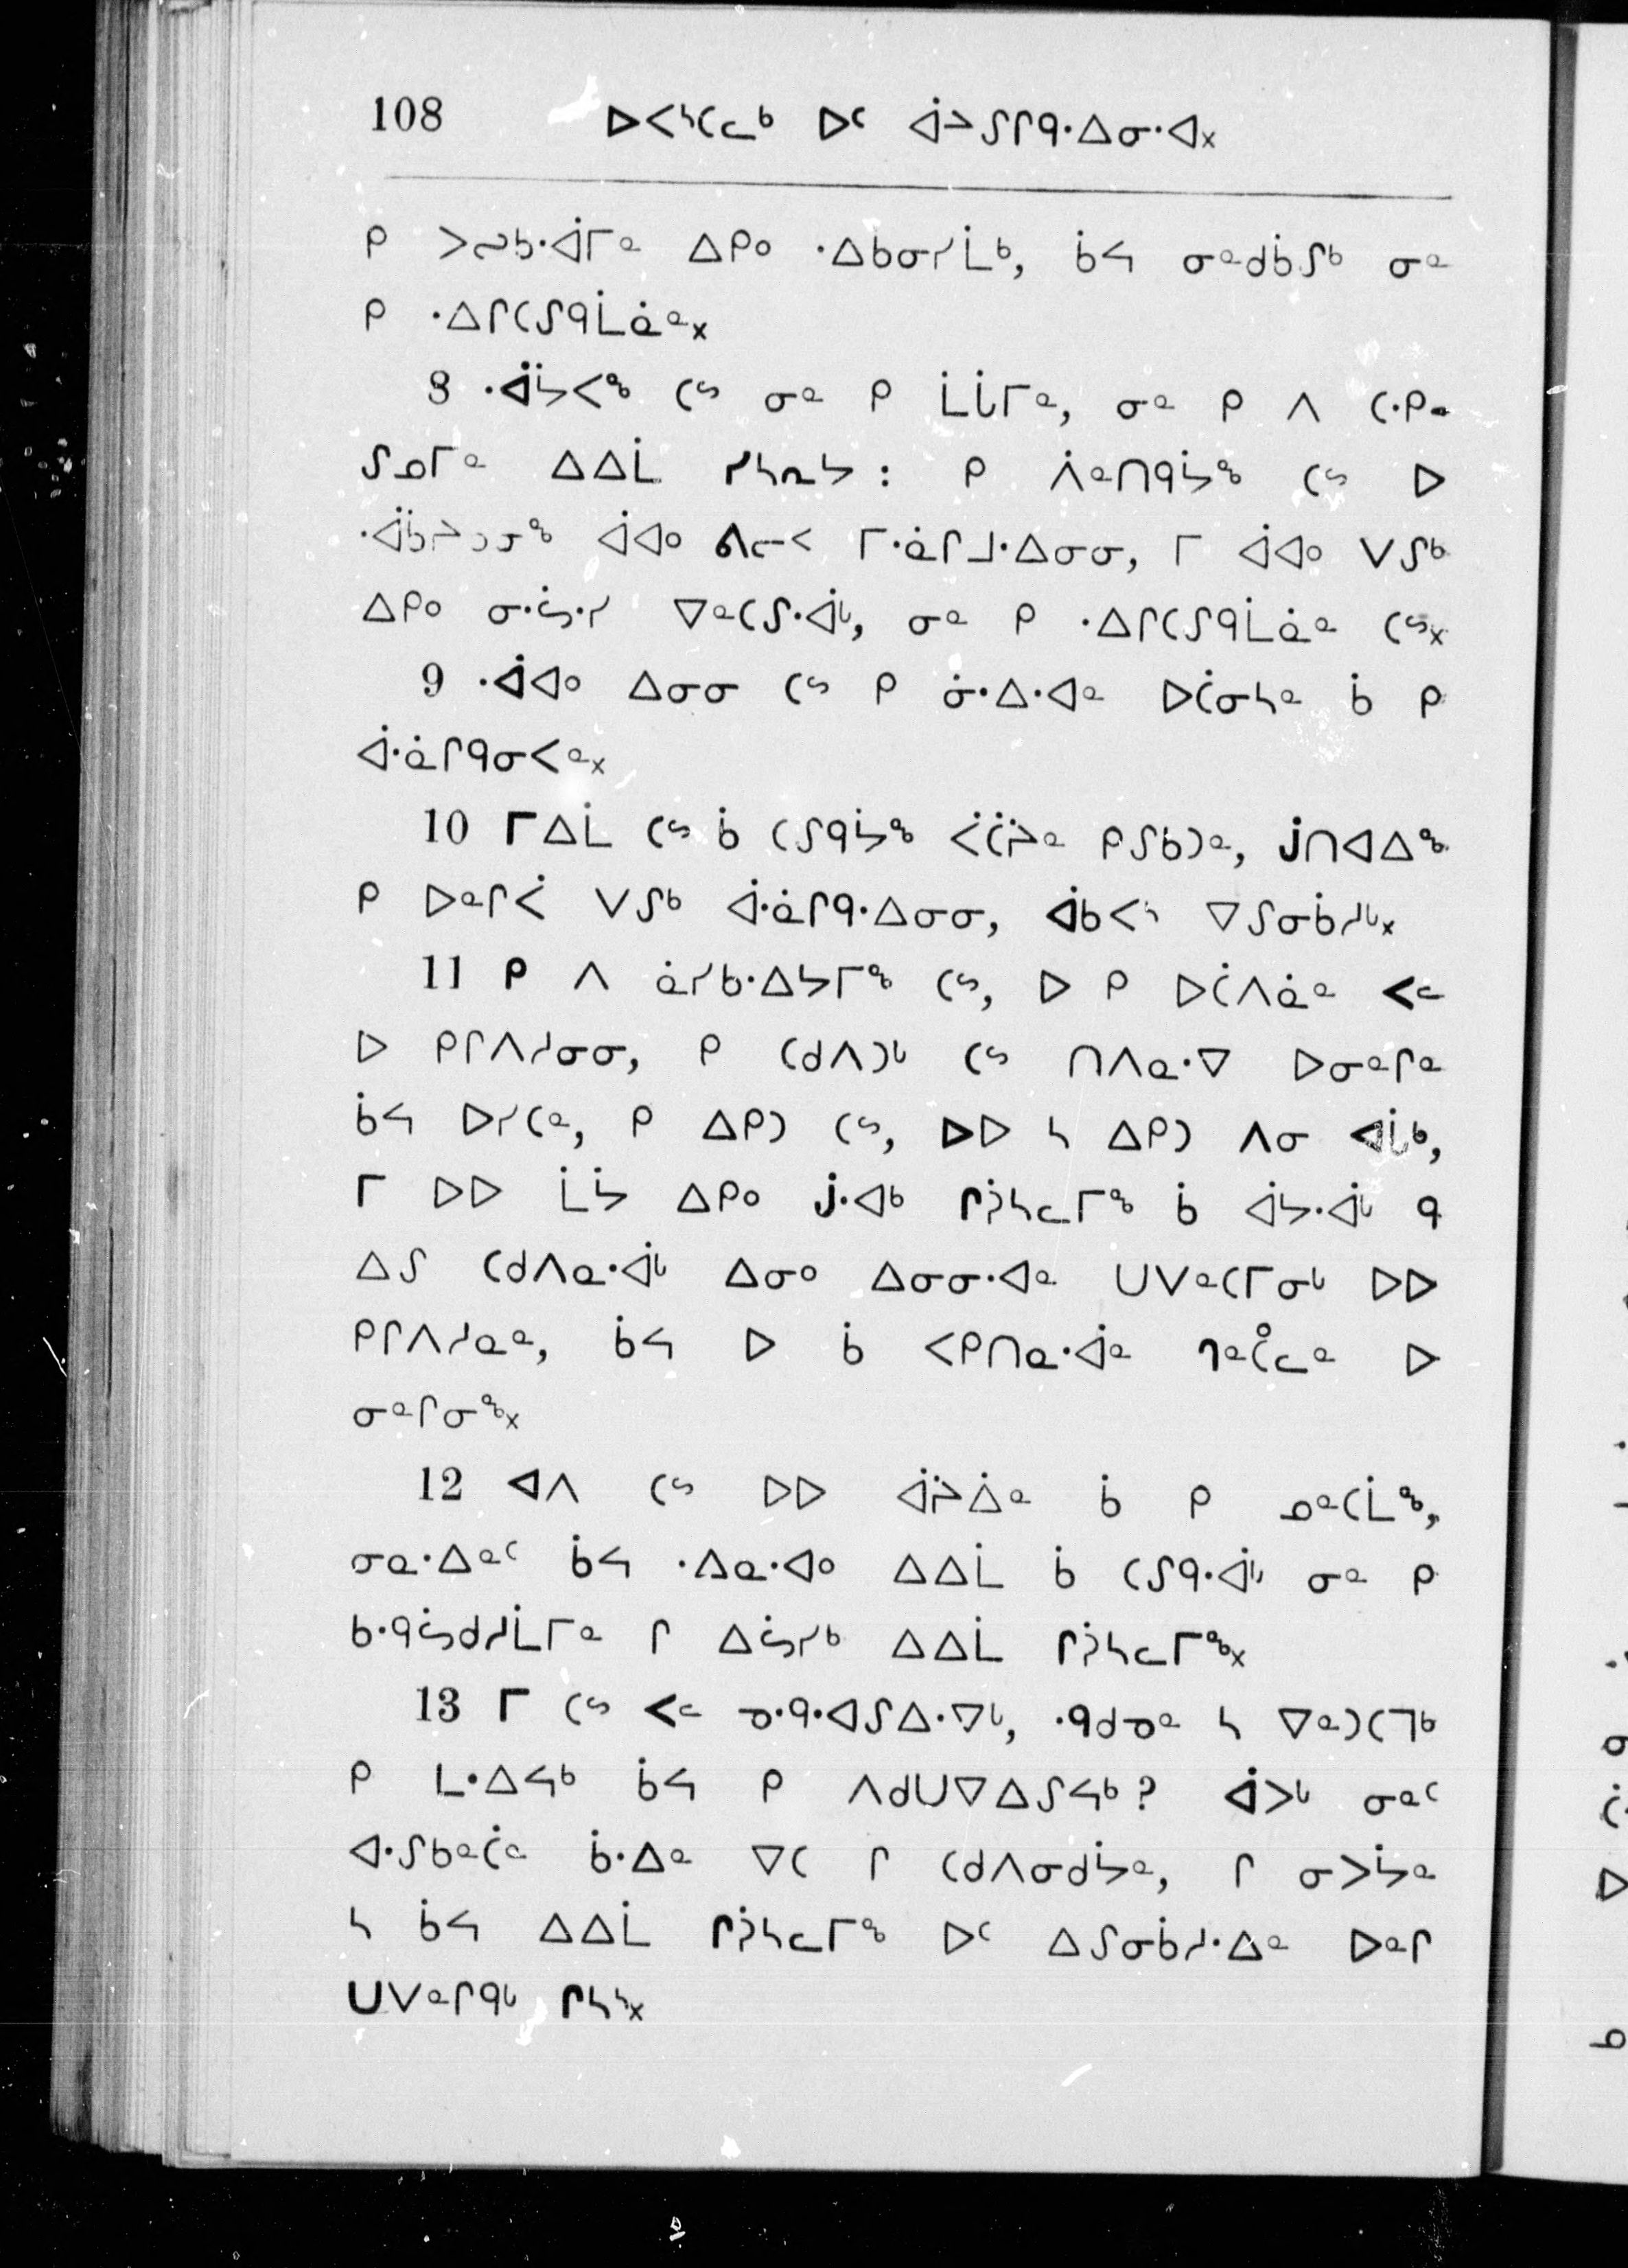 108 ᐅᐸᔅᑕᓚᒃ ᐅᑦ ᐋᔨᔑᒋᑫᐧᐃᓂᐧᐊ᙮
ᑭ ᐃᑭᐤ ᐧᐃᑲᓂᓯᒫᒃ, ᑳᔭ ᓂᓐᑯᑳᔑᒃ ᓂᓐ
ᑭ ᐧᐃᒋᑕᔑᑫᒫᓈᓐ᙮
8 ᑕᔥ ᓂᓐ ᑭ ᒫᒑᒥᓐ, ᓂᓐ ᑭ ᐱ ᑕᐧᑭ-
ᔑᓄᒥᓐ ᐃᐃᒫ ᓯᓴᕆᔭ : ᑭ ᐲᓐᑎᑫᔮᓐᒃ ᑕᔥ ᐅ
ᐋᐊᐤ ᒥᐧᓈᒋᒧᐧᐃᓂᓂ, ᒥ ᐋᐊᐤ ᐯᔑᒃ
ᐃᑭᐤ ᓂᐧᔖᐧᓯ ᐁᓐᑕᔑᐧᐋᒡ, ᓂᓐ ᑭ ᐧᐃᒋᑕᔑᑫᒫᓈᓐ ᑕᔥ᙮
9 ᐧᐋᐊᐤ ᐃᓂᓂ ᑕᔥ ᑭ ᓃᐧᐃᐧᐊᓐ ᐅᑖᓂᓴᓐ ᑳ ᑭ
ᐋᐧᓈᒋᑫᓂᐸᓐ᙮
10 ᒥᐃᒫ ᑕᔥ ᑳ ᑕᔑᑫᔮᓐᒃ ᑭᔑᑲᑐᓐ, ᒎᑎᐊᐃᓐᒃ
ᑭ ᐅᓐᒋᐹ ᐯᔑᒃ ᐋᐧᓈᒋᑫᐧᐃᓂᓂ, ᐋᑲᐸᔅ ᐁᔑᓂᑳᓱᒡ᙮
11 ᑭ ᐱ ᓈᓯᑲᐧᐃᔭᒥᓐᒃ ᑕᔥ, ᐅ ᑭ ᐅᑖᐱᓈᓐ ᐸᓪ
ᐅ ᑭᒋᐱᓱᓂᓂ, ᑭ ᑕᑯᐱᑐᒡ ᑕᔥ ᑎᐱᓇᐧᐁ ᐅᓂᓐᒋᓐ
ᑳᔭ ᐅᓯᑕᓐ, ᑭ ᐃᑭᑐ ᑕᔥ, ᐅᐅ ᓴ ᐃᑭᑐ ᐱᓂ ᐊᒑᒃ,
ᒥ ᐅᐅ ᒫᔮ ᐃᑭᐤ ᒎᐧᐊᒃ ᒋᕉᓴᓚᒥᓐᒃ ᑳ ᐋᔭᐧᐋᒡ ᑫ
ᐃᔑ ᑕᑯᐱᓇᐧᐋᒡ ᐃᓂᐤ ᐃᓂᓂᐧᐊᓐ ᑌᐯᓐᑕᒥᓂᒡ ᐅᐅ
ᑭᒋᐱᓱᓇᓐ, ᑳᔭ ᐅ ᑳ ᐸᑭᑎᓇᐧᐋᓐ ᐅ
ᓂᓐᒋᓂᓐᒃ᙮
12 ᐊᐱ ᑕᔥ ᐅᐅ ᑳ ᑭ ᓄᓐᑕᒫᓐᒃ,
ᓂᓇᐧᐃᓐᑦ ᑳᔭ ᐧᐃᓇᐧᐊᐤ ᐃᐃᒫ ᑳ ᑕᔑᑫᐧᐋᒡ ᓂᓐ ᑭ
ᑲᐧᑫᔖᑯᓱᒫᒥᓐ ᒋ ᐃᔖᓯᒃ ᐃᐃᒫ ᒋᕉᓴᓚᒥᓐᒃ᙮
13 ᒥ ᑕᔥ ᐸᓪ ᓀᐧᑫᐧᐊᔑᐃᐧᐁᒡ, ᐧᑫᑯᓀᓐ ᓴ ᐁᓐᑐᑕᒣᒃ
ᑭ ᒪᐧᐃᔭᒃ ᑳᔭ ᑭ ᐱᑯᑌᐁᐃᔑᔭᒃ? ᐋᐳᒡ ᓂᓐᑦ
ᐊᐧᔑᑲᓐᑖᓐ ᑳᐧᐃᓐ ᐁᑕ ᒋ ᑕᑯᐱᓂᑯᔮᓐ, ᒋ ᓂᐳᔮᓐ
ᓴ ᑳᔭ ᐃᐃᒫ ᒋᕉᓴᓚᒥᓐᒃ ᐅᑦ ᐃᔑᓂᑳᓱᐧᐃᓐ ᐅᓐᒋ
ᑌᐯᓐᒋᑫᒡ ᒋᓴᔅ᙮